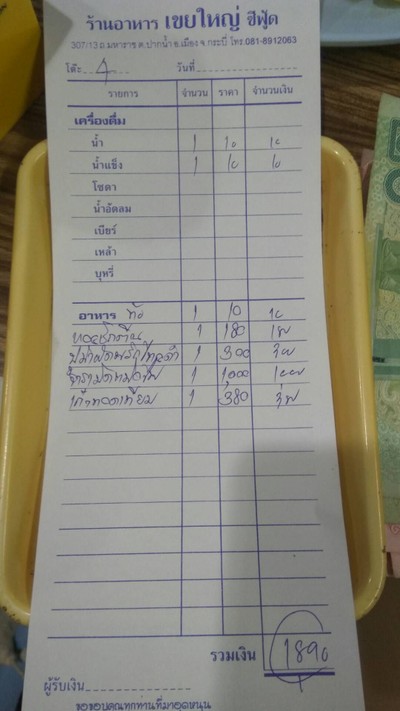 ร้านอาหาร เขยใหญ่ ซีฟู้ด
307/13 ถ.มหาราช ต.ปากน้ำ อ.เมือง จ.กระบี่ โทร.081-8912063
โต๊ะ 4 วันที่
รายการ จำนวน ราคา จำนวนเงิน
เครื่องดื่ม
น้ำ 1 10 10
น้ำแข็ง 1 10 10
โซดา
น้ำอัดลม
เบียร์
เหล้า
บุหรี่
อาหาร 1 10 10
1 180 180
1 300
1 1,000
1 380
รวมเงิน 1890
ผู้รับเงิน
ขอขอบคุณทุกท่านที่มาอุดหนุน